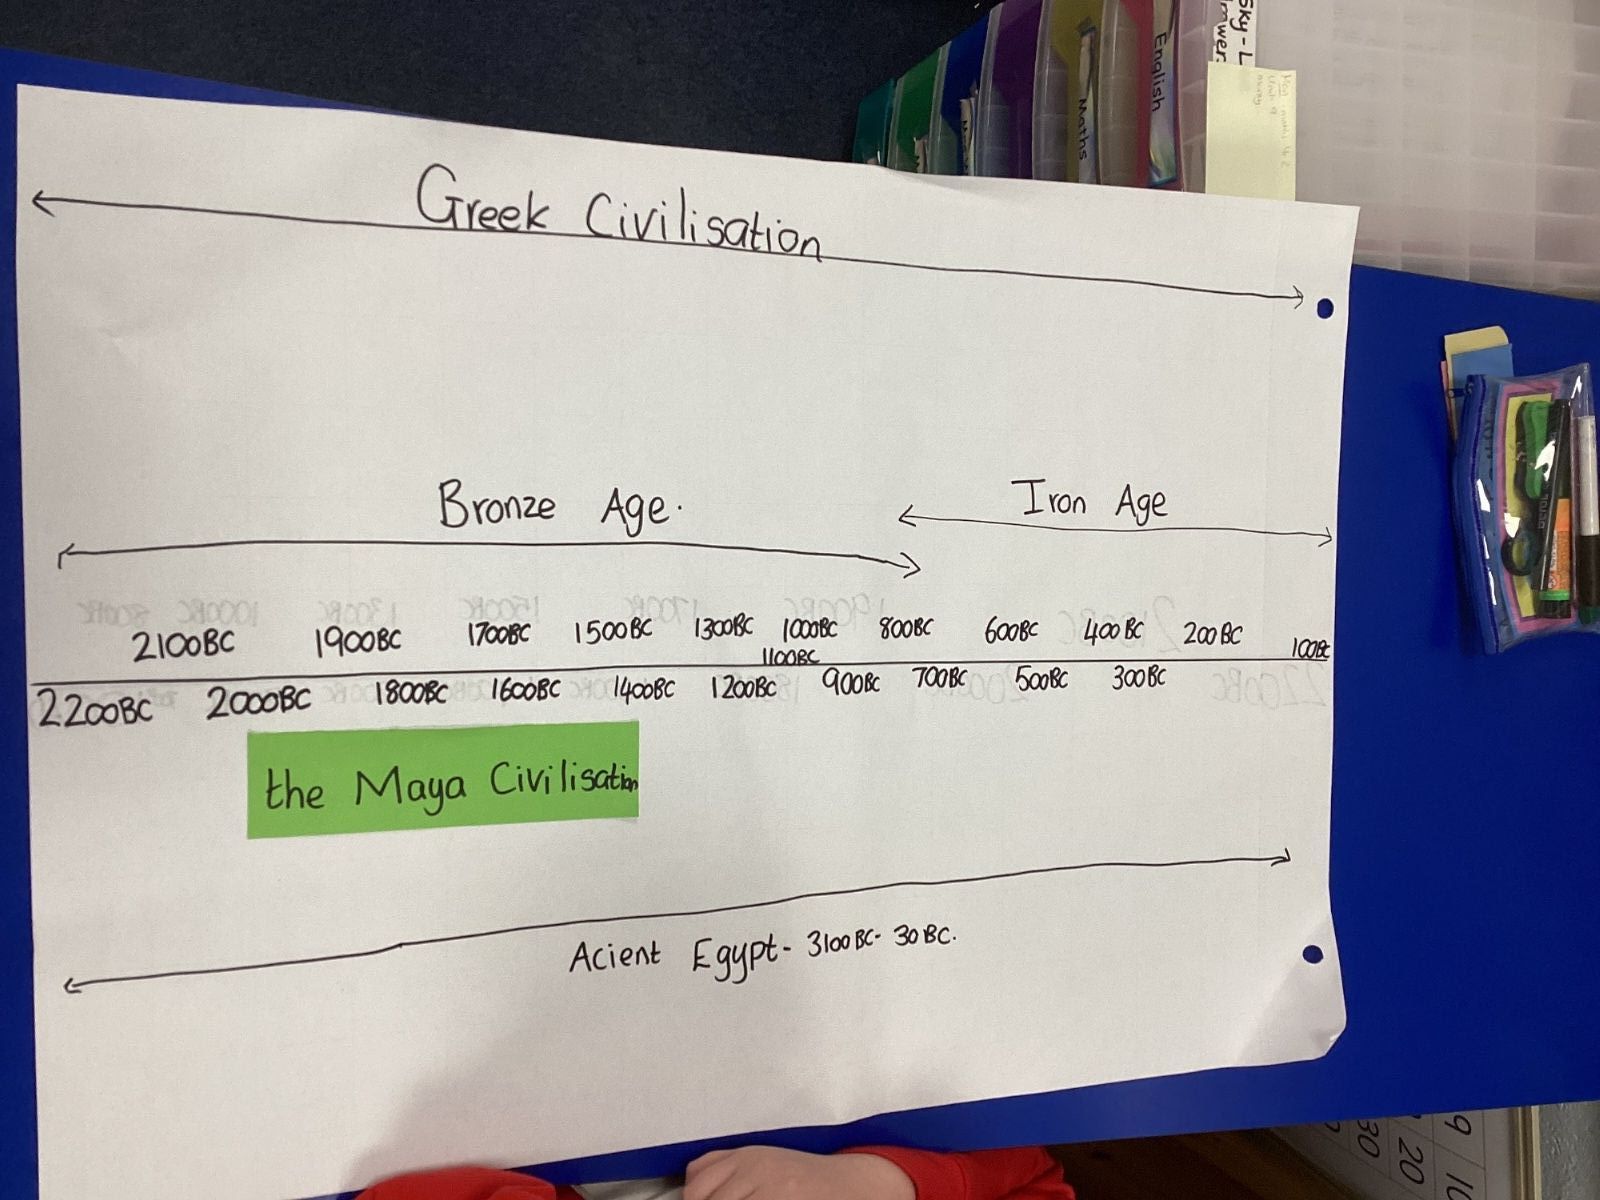 Sky - L
English
Maths
Greek Civilisation
Bronze Age.
Iron Age
2100BC 1900BC 1700BC 1500BC 1300BC 1000BC 800BC 600BC 400BC 200BC 100BC
1100BC
2200BC 2000BC 1800BC 1600BC 1400BC 1200BC 900BC 700BC 500BC 300BC
the Maya Civilisation
Acient Egypt- 3100BC- 30BC.
9
30 20 10